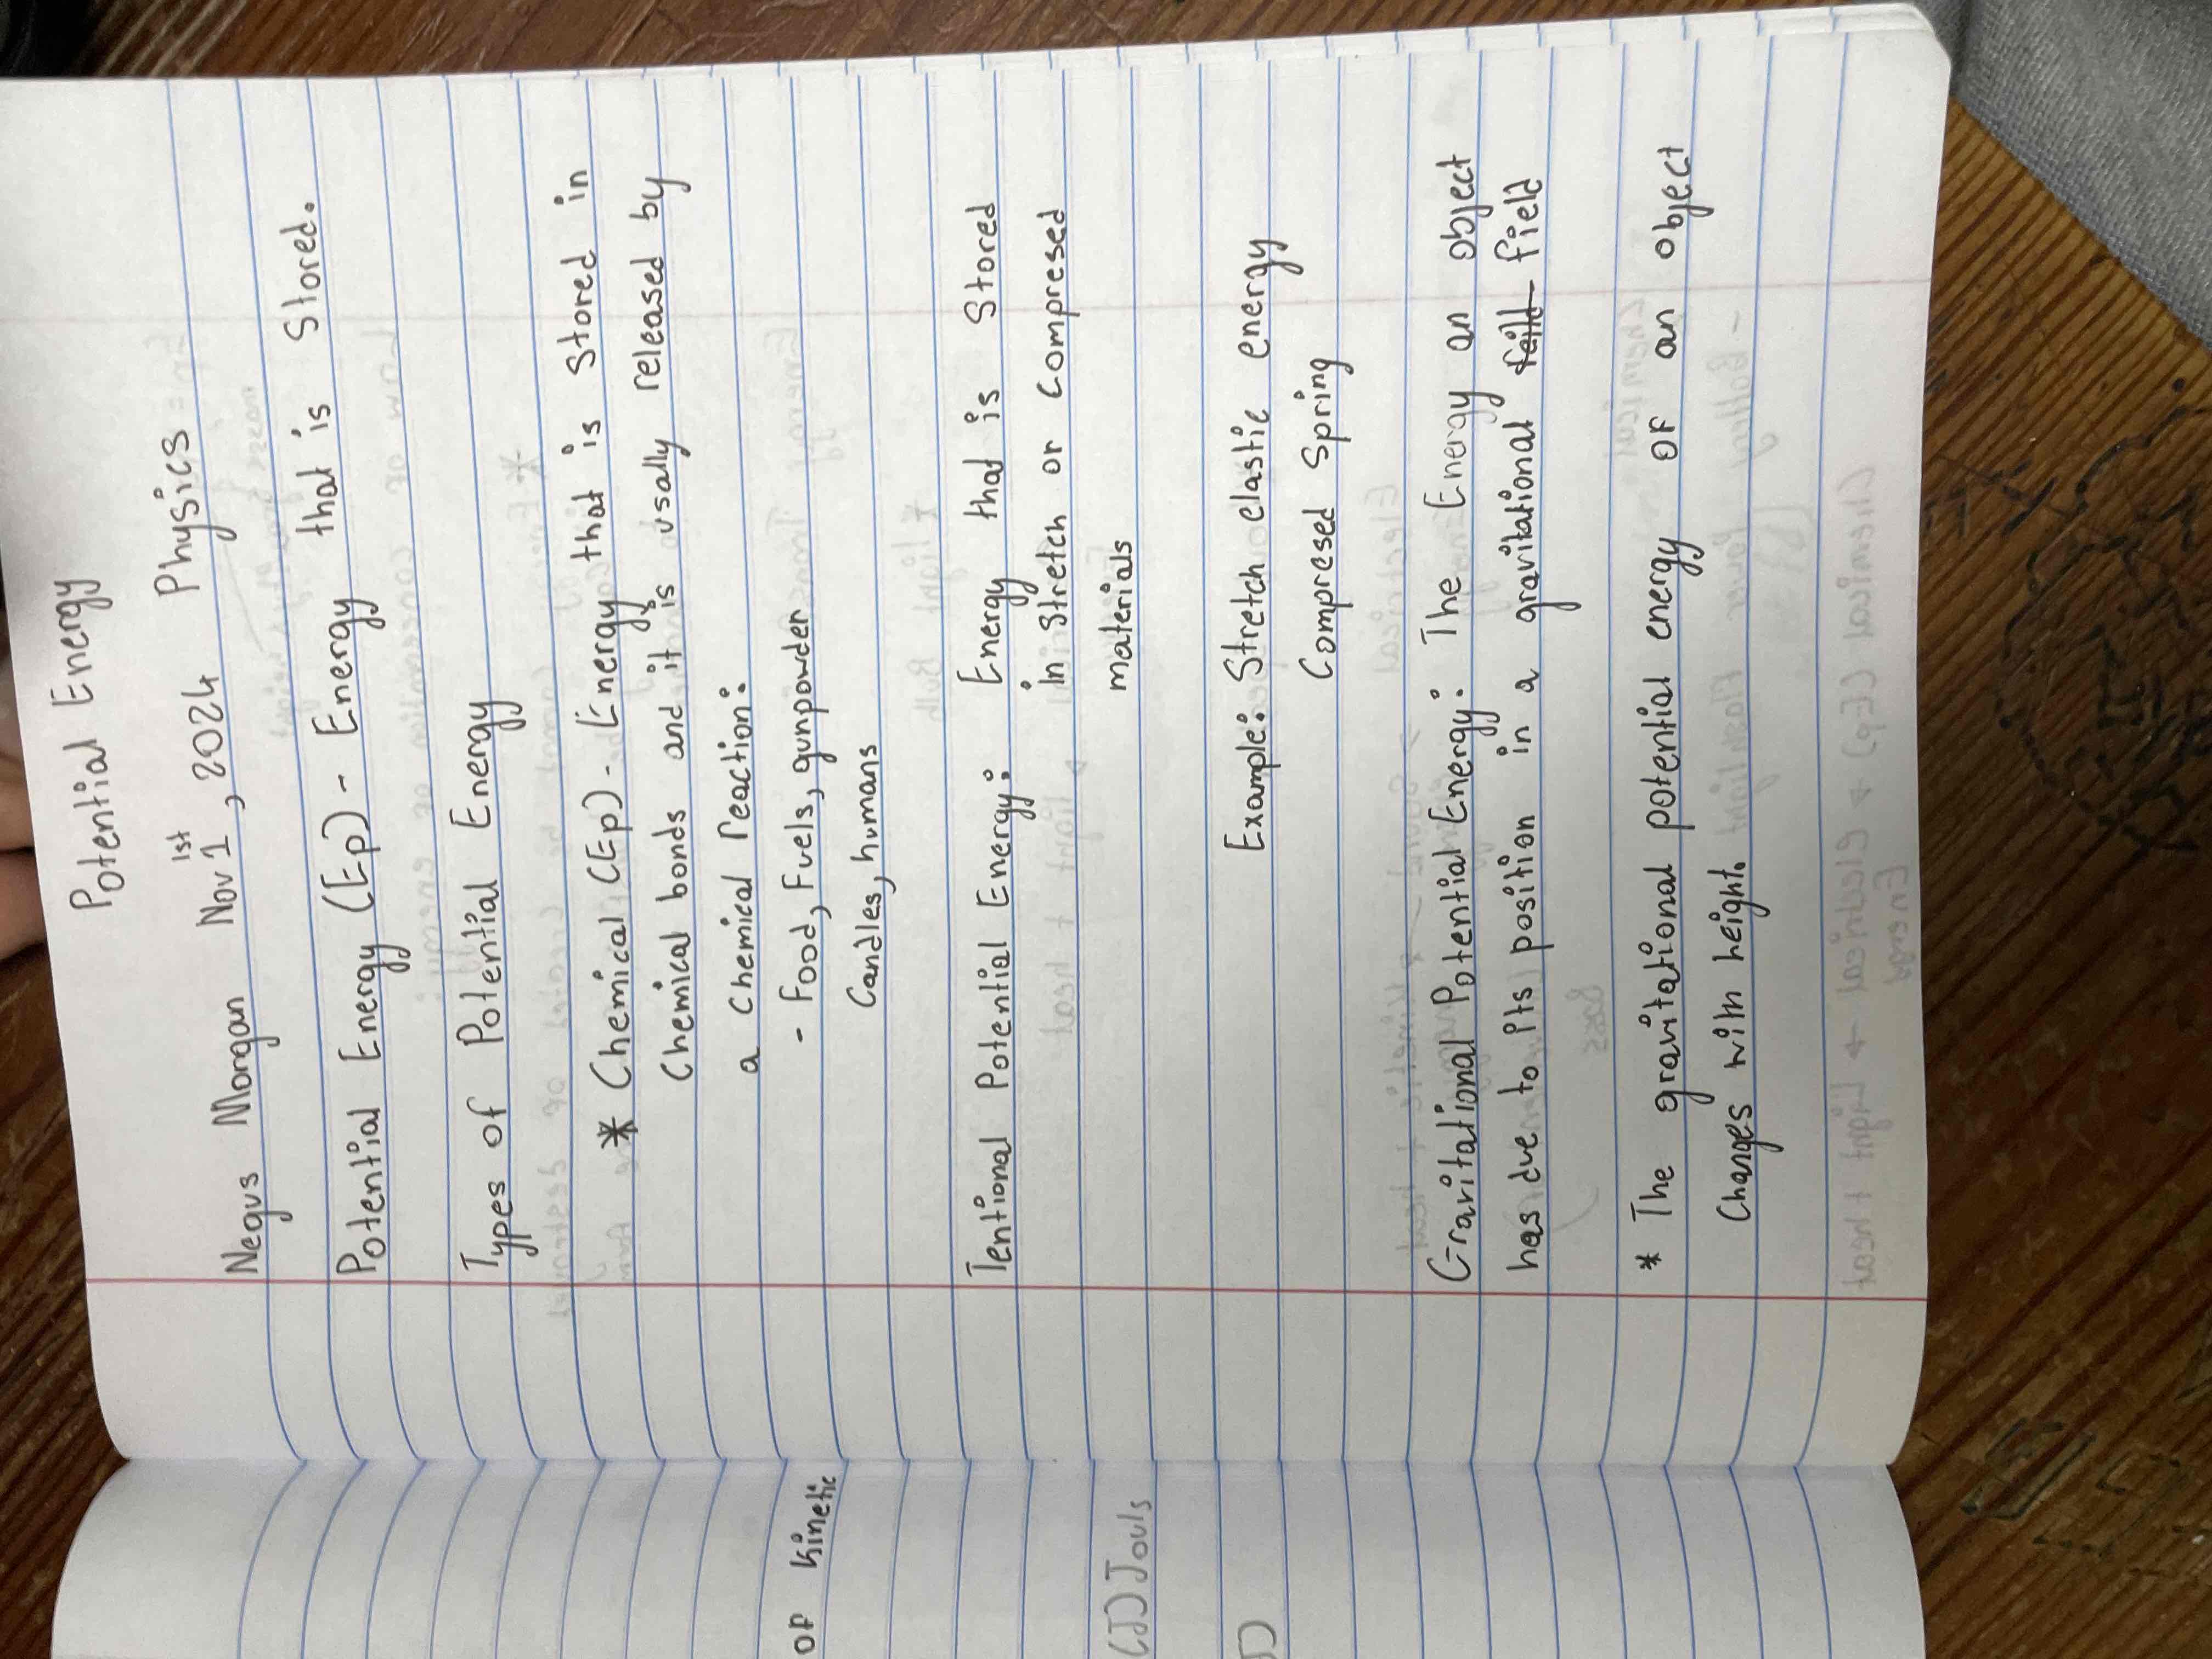 Potential Energy
Negus Morgan Nov 1st, 2024 Physics
Potential Energy (Ep) - Energy that is Stored.
Types of Potential Energy
* Chemical (Ep) - Energy that is Stored in
Chemical bonds and it is usally released by
a Chemical reaction:
- Food, Fuels, gunpowder
Candles, humans
Tentional Potential Energy: Energy that is Stored
in Stretch or Compresed
materials
Example: Stretch elastic energy
Compresed Spring
Gravitational Potential Energy: The Energy an object
has due to its position in a gravitational feild field
* The gravitational potential energy of an object
Changes with height.
of Kinetic
(J) Jouls